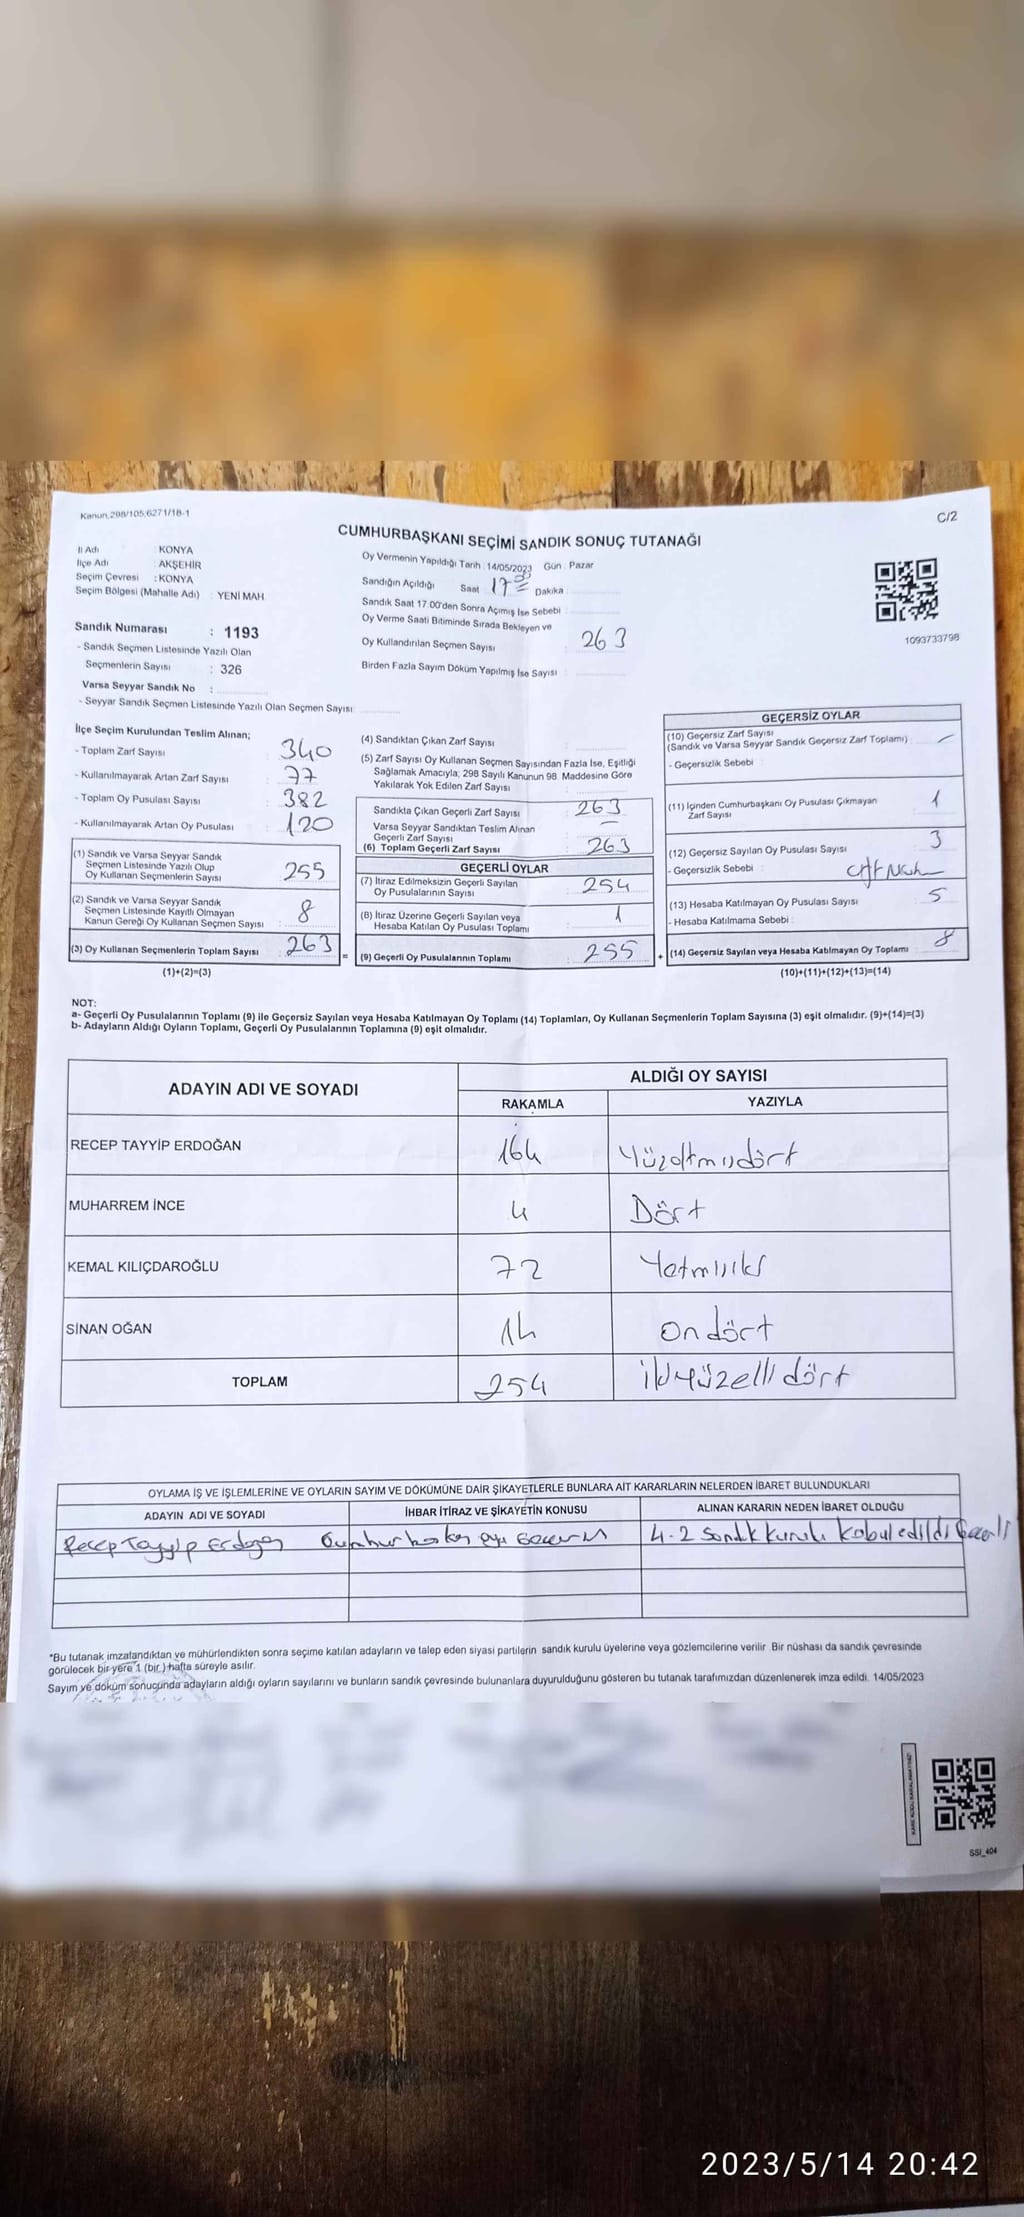 Kanun,298/105,6271/18-1
C/2
CUMHURBAŞKANI SEÇİMİ SANDIK SONUÇ TUTANAĞI
İl Adı : KONYA
İlçe Adı : AKŞEHİR
Seçim Çevresi : KONYA
Seçim Bölgesi (Mahalle Adı) : YENİ MAH
Sandık Numarası : 1193
- Sandık Seçmen Listesinde Yazılı Olan
Seçmenlerin Sayısı : 326
Varsa Seyyar Sandık No :
- Seyyar Sandık Seçmen Listesinde Yazılı Olan Seçmen Sayısı
Oy Vermenin Yapıldığı Tarih : 14/05/2023 Gün : Pazar
Sandığın Açıldığı Saat 17 Dakika
Sandık Saat 17.00'den Sonra Açımış İse Sebebi :
Oy Verme Saati Bitiminde Sırada Bekleyen ve
Oy Kullandırılan Seçmen Sayısı : 263
Birden Fazla Sayım Döküm Yapılmış İse Sayısı :
1093733798
İlçe Seçim Kurulundan Teslim Alınan;
- Toplam Zarf Sayısı : 340
- Kullanılmayarak Artan Zarf Sayısı : 77
- Toplam Oy Pusulası Sayısı : 382
- Kullanılmayarak Artan Oy Pusulası : 120
(1) Sandık ve Varsa Seyyar Sandık
Seçmen Listesinde Yazılı Olup
Oy Kullanan Seçmenlerin Sayısı : 255
(2) Sandık ve Varsa Seyyar Sandık
Seçmen Listesinde Kayıtlı Olmayan
Kanun Gereği Oy Kullanan Seçmen Sayısı : 8
(3) Oy Kullanan Seçmenlerin Toplam Sayısı : 263
(1)+(2)=(3)
(4) Sandıktan Çıkan Zarf Sayısı :
(5) Zarf Sayısı Oy Kullanan Seçmen Sayısından Fazla İse, Eşitliği
Sağlamak Amacıyla; 298 Sayılı Kanunun 98. Maddesine Göre
Yakılarak Yok Edilen Zarf Sayısı :
Sandıkta Çıkan Geçerli Zarf Sayısı : 263
Varsa Seyyar Sandıktan Teslim Alınan
Geçerli Zarf Sayısı : –
(6) Toplam Geçerli Zarf Sayısı : 263
GEÇERLİ OYLAR
(7) İtiraz Edilmeksizin Geçerli Sayılan
Oy Pusulalarının Sayısı : 254
(8) İtiraz Üzerine Geçerli Sayılan veya
Hesaba Katılan Oy Pusulası Toplamı : 1
= (9) Geçerli Oy Pusulalarının Toplamı : 255
GEÇERSİZ OYLAR
(10) Geçersiz Zarf Sayısı
(Sandık ve Varsa Seyyar Sandık Geçersiz Zarf Toplamı) : –
- Geçersizlik Sebebi :
(11) İçinden Cumhurbaşkanı Oy Pusulası Çıkmayan
Zarf Sayısı : 1
(12) Geçersiz Sayılan Oy Pusulası Sayısı : 3
- Geçersizlik Sebebi :
(13) Hesaba Katılmayan Oy Pusulası Sayısı : 5
- Hesaba Katılmama Sebebi :
+ (14) Geçersiz Sayılan veya Hesaba Katılmayan Oy Toplamı : 8
(10)+(11)+(12)+(13)=(14)
NOT:
a- Geçerli Oy Pusulalarının Toplamı (9) ile Geçersiz Sayılan veya Hesaba Katılmayan Oy Toplamı (14) Toplamları, Oy Kullanan Seçmenlerin Toplam Sayısına (3) eşit olmalıdır. (9)+(14)=(3)
b- Adayların Aldığı Oyların Toplamı, Geçerli Oy Pusulalarının Toplamına (9) eşit olmalıdır.
ADAYIN ADI VE SOYADI ALDIĞI OY SAYISI
RAKAMLA YAZIYLA
RECEP TAYYİP ERDOĞAN 164 Yüzaltmışdört
MUHARREM İNCE 4 Dört
KEMAL KILIÇDAROĞLU 72 Yetmişiki
SİNAN OĞAN 14 Ondört
TOPLAM 254 İkiyüzelli dört
OYLAMA İŞ VE İŞLEMLERİNE VE OYLARIN SAYIM VE DÖKÜMÜNE DAİR ŞİKAYETLERLE BUNLARA AİT KARARLARIN NELERDEN İBARET BULUNDUKLARI
ADAYIN ADI VE SOYADI İHBAR İTİRAZ VE ŞİKAYETİN KONUSU ALINAN KARARIN NEDEN İBARET OLDUĞU
Recep Tayyip Erdoğan Cumhurbaşkan oyu 4-2 Sandık kurulu kabul edildi Geçerli
*Bu tutanak imzalandıktan ve mühürlendikten sonra seçime katılan adayların ve talep eden siyasi partilerin sandık kurulu üyelerine veya gözlemcilerine verilir Bir nüshası da sandık çevresinde
görülecek bir yere 1 (bir ) hafta süreyle asılır.
Sayım ve döküm sonucunda adayların aldığı oyların sayılarını ve bunların sandık çevresinde bulunanlara duyurulduğunu gösteren bu tutanak tarafımızdan düzenlenerek imza edildi. 14/05/2023
SSI_404
2023/5/14 20:42